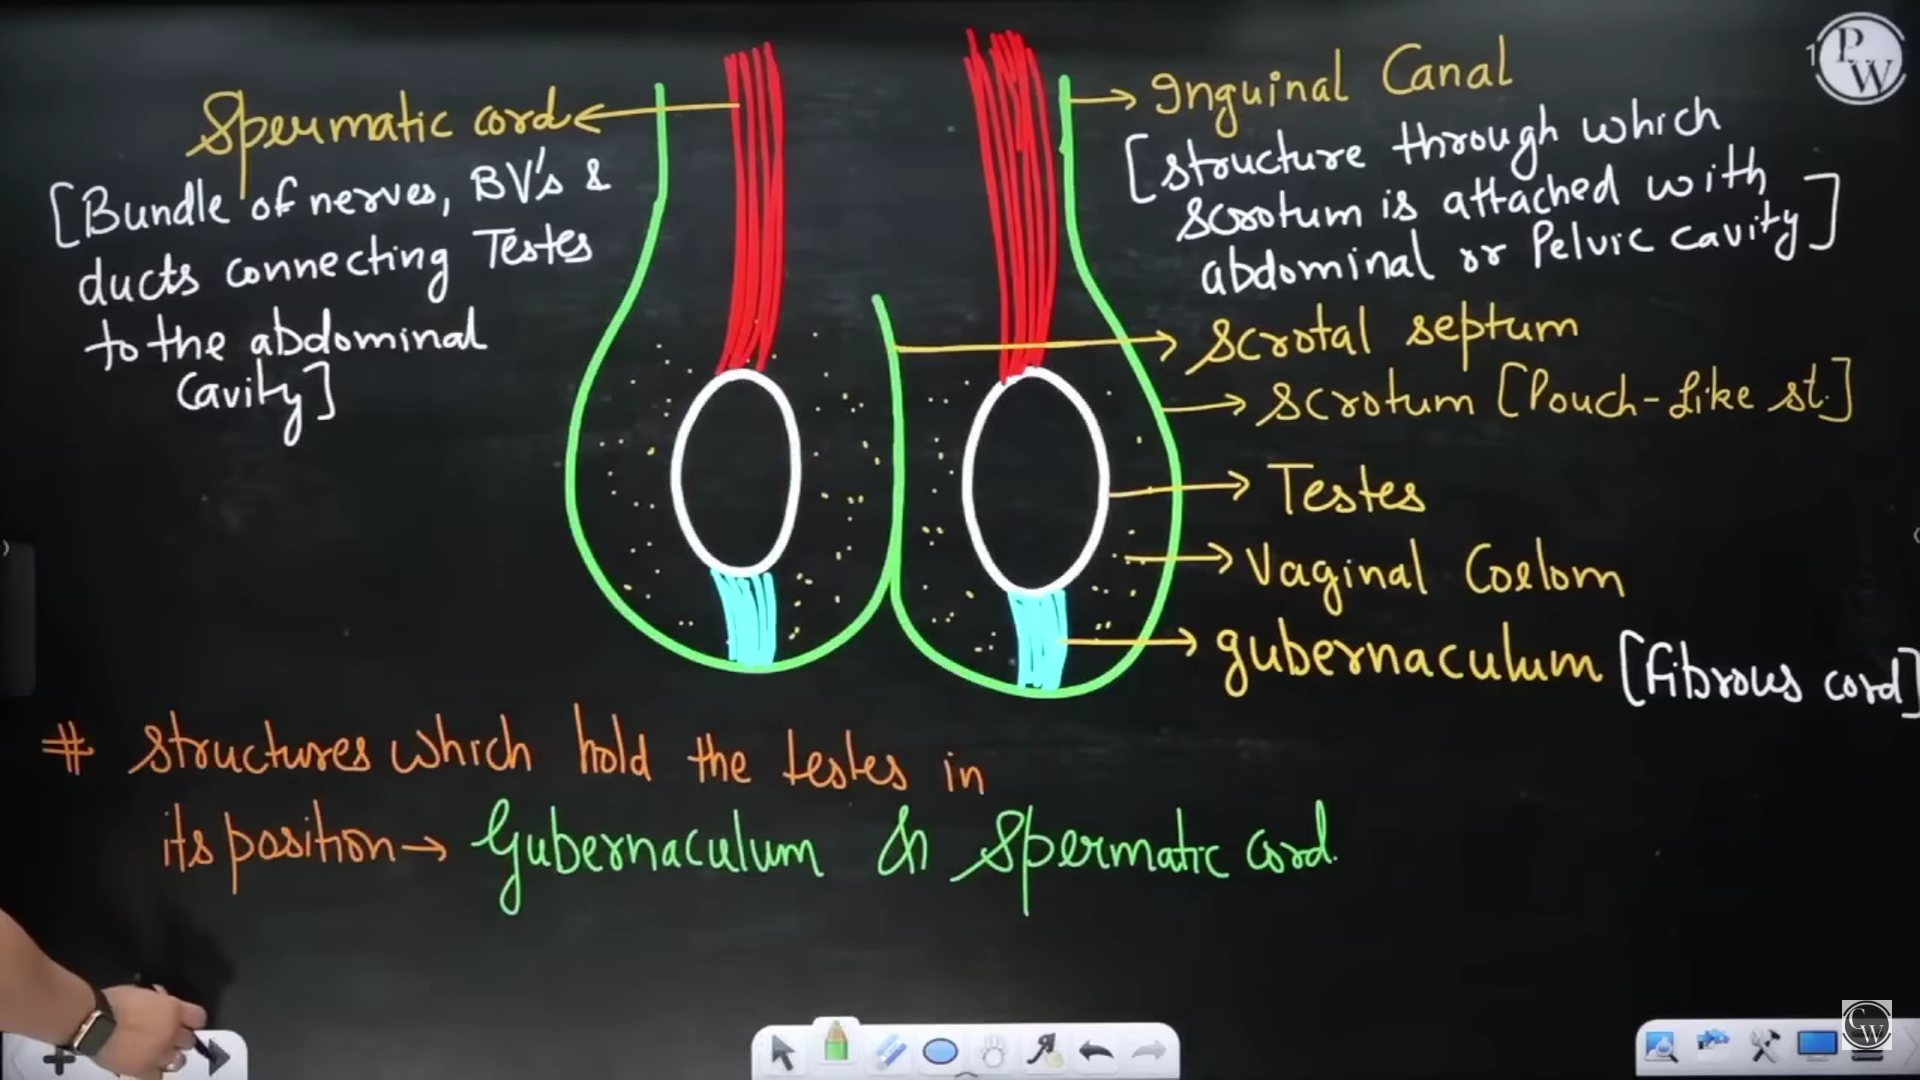 Spermatic cord
[Bundle of nerves, BV's &
ducts connecting Testes
to the abdominal
Cavity]
Inguinal Canal
[structure through which
scrotum is attached with
abdominal or Pelvic cavity]
scrotal septum
scrotum [Pouch-like st.]
Testes
Vaginal Coelom
gubernaculum [fibrous cord]
# structures which hold the testes in
its position → Gubernaculum & Spermatic cord.
1
PW
CW